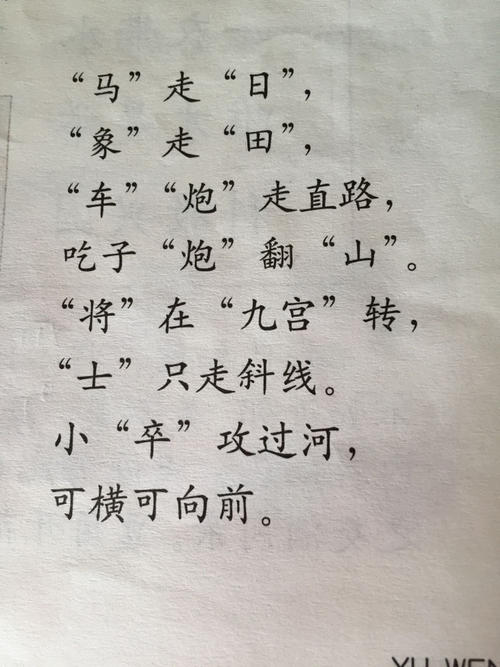 “马”走“日”，
“象”走“田”，
“车”“炮”走直路，
吃子“炮”翻“山”。
“将”在“九宫”转，
“士”只走斜线。
小“卒”攻过河，
可横可向前。
YU WEN